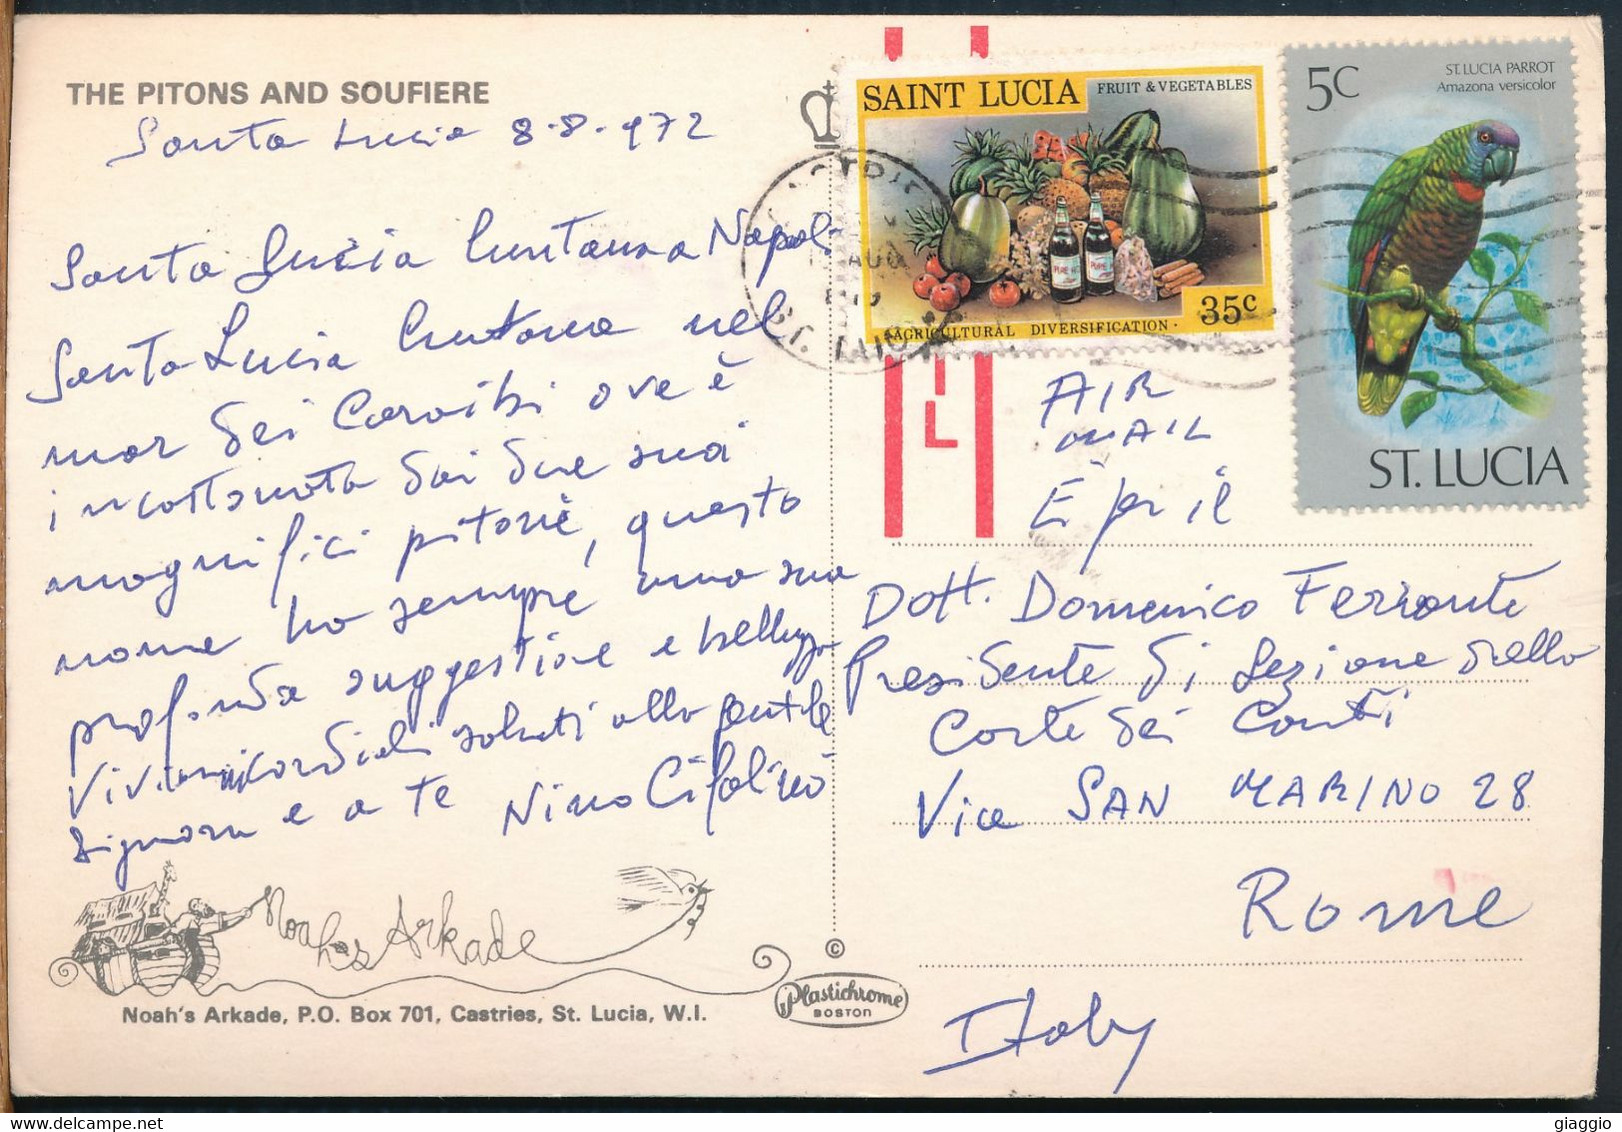 THE PITONS AND SOUFIERE
Santa Lucia 8.8.972
Santa Lucia luntana a Napoli
Santa Lucia luntana nel
mar dei Caraibi ove è
incastonata dai due suoi
magnifici pitons, questo
nome ha sempre una sua
profonda suggestione e bellezza
Vivi cordiali saluti alla gentile
Signora e a te Nino Cifolino
Noah's Arkade
Noah's Arkade, P.O. Box 701, Castries, St. Lucia, W.I.
©
Plastichrome
BOSTON
SAINT LUCIA FRUIT & VEGETABLES
PURE
35c
AGRICULTURAL DIVERSIFICATION
5C ST. LUCIA PARROT
Amazona versicolor
ST. LUCIA
AUG
ST. LUCIA
AIR
MAIL
Dott. Domenico Ferrante
Presidente di Sezione della
Corte dei Conti
Via SAN MARINO 28
Rome
Italy
delcampe.net
giaggio